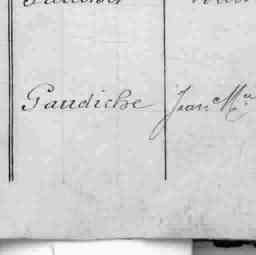 Gaudiche Jean Mie